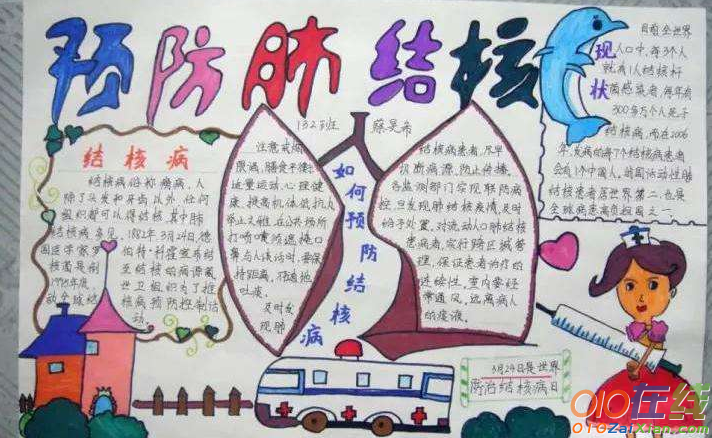 预防肺结核
132班 蔡昊希
结核病
结核病俗称痨病，人
除了头发和牙齿以外，任何
组织都可以得结核，其中肺
结核病多见，1882年3月24日，德
国医学家罗
伯特·科霍宣布结
核菌是制
至结核的病源菌
1995年底，
世卫组织为了推
动全球结
核病预防控制活
动。
注意戒烟
限酒，膳食平衡
适量运动，心理健
康，提高机体低抗人
举止文雅，在公共场所
打喷嚏须遮掩口
鼻与人谈话时，要保
持距离，不随地
吐痰。
及时发
现肺
如何预防结核病
结核病患者，尽早
切断病源，防止传播。
各监测部门实现联防病
控，旦发现肺结核疫情，及时
给予处置，对流动人口肺结核
患病者，实行跨区域管
理，保证患者治疗的
连续性。室内要经
常通风，远离病人
的痰液。
现状
目前全世界
人口中，每3个人
就有1人结核杆
菌感染者，每年有
300多万个人死于
结核病，而在2006
年，发病的每7个结核病患者
会有1个中国人，的国活动性肺
结核患者居世界第二，也是
全球病患高负担国之一。
3月24日是世界
防治结核病日
010在线
010zaixian.com